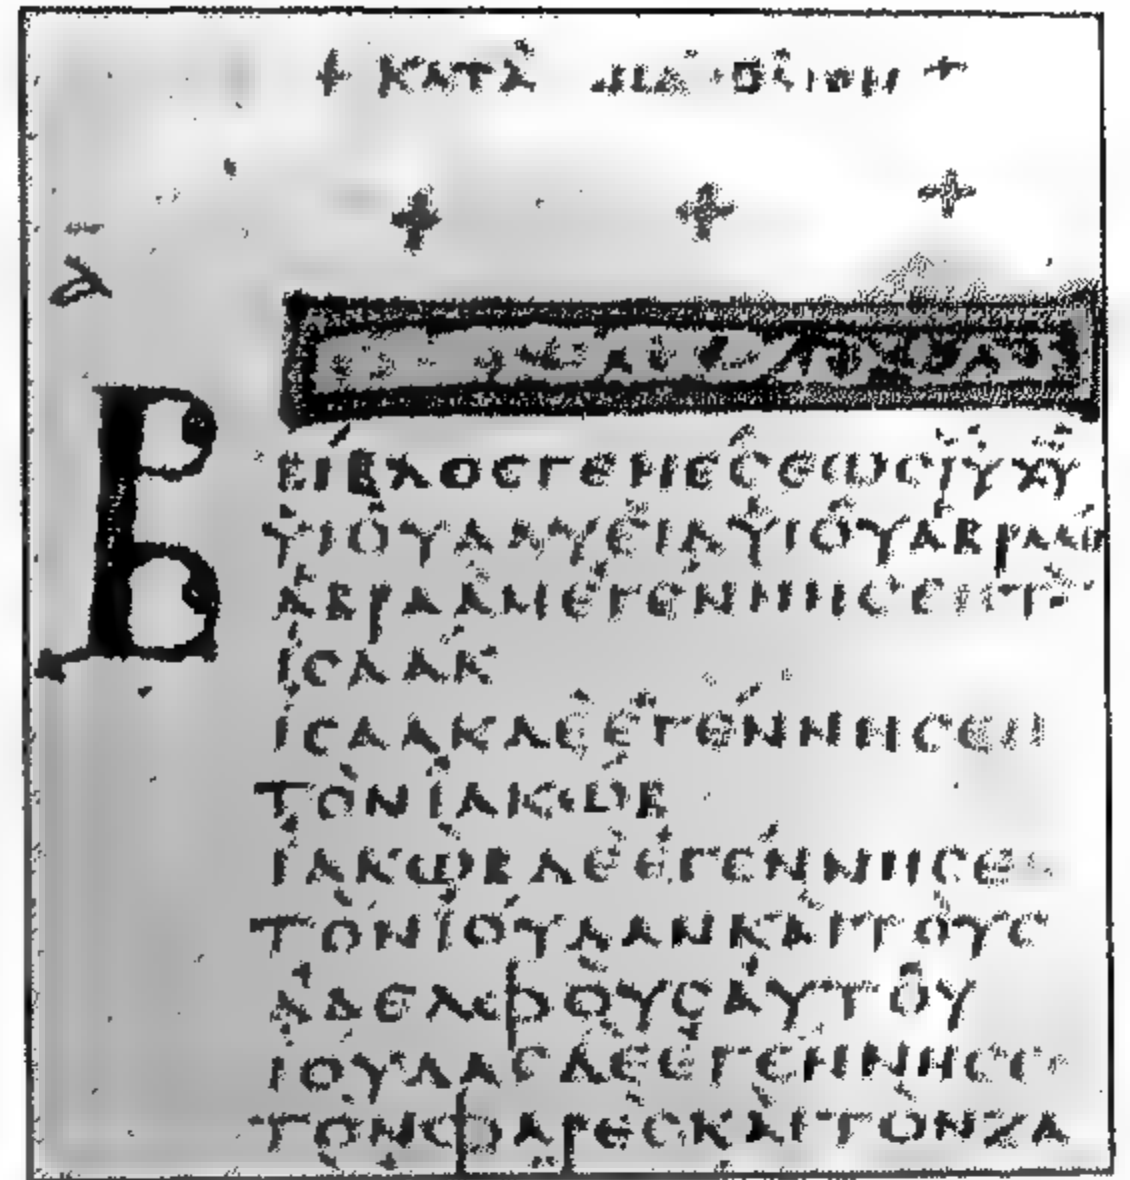 + ΚΑΤΑ ΜΑΤΘΑΙΟΝ +
+ + +
Α
ΒΙΒΛΟΣ ΓΕΝΕΣΕΩΣ ΙΥ ΧΥ
ΥΙΟΥ ΔΑΥΕΙΔ ΥΙΟΥ ΑΒΡΑΑΜ
ΑΒΡΑΑΜ ΕΓΕΝΝΗΣΕΝ ΤΟ
ΙΣΑΑΚ
ΙΣΑΑΚ ΔΕ ΕΓΕΝΝΗΣΕΝ
ΤΟΝ ΙΑΚΩΒ
ΙΑΚΩΒ ΔΕ ΕΓΕΝΝΗΣΕ
ΤΟΝ ΙΟΥΔΑΝ ΚΑΙ ΤΟΥΣ
ΑΔΕΛΦΟΥΣ ΑΥΤΟΥ
ΙΟΥΔΑΣ ΔΕ ΕΓΕΝΝΗΣΕ
ΤΟΝ ΦΑΡΕΣ ΚΑΙ ΤΟΝ ΖΑ